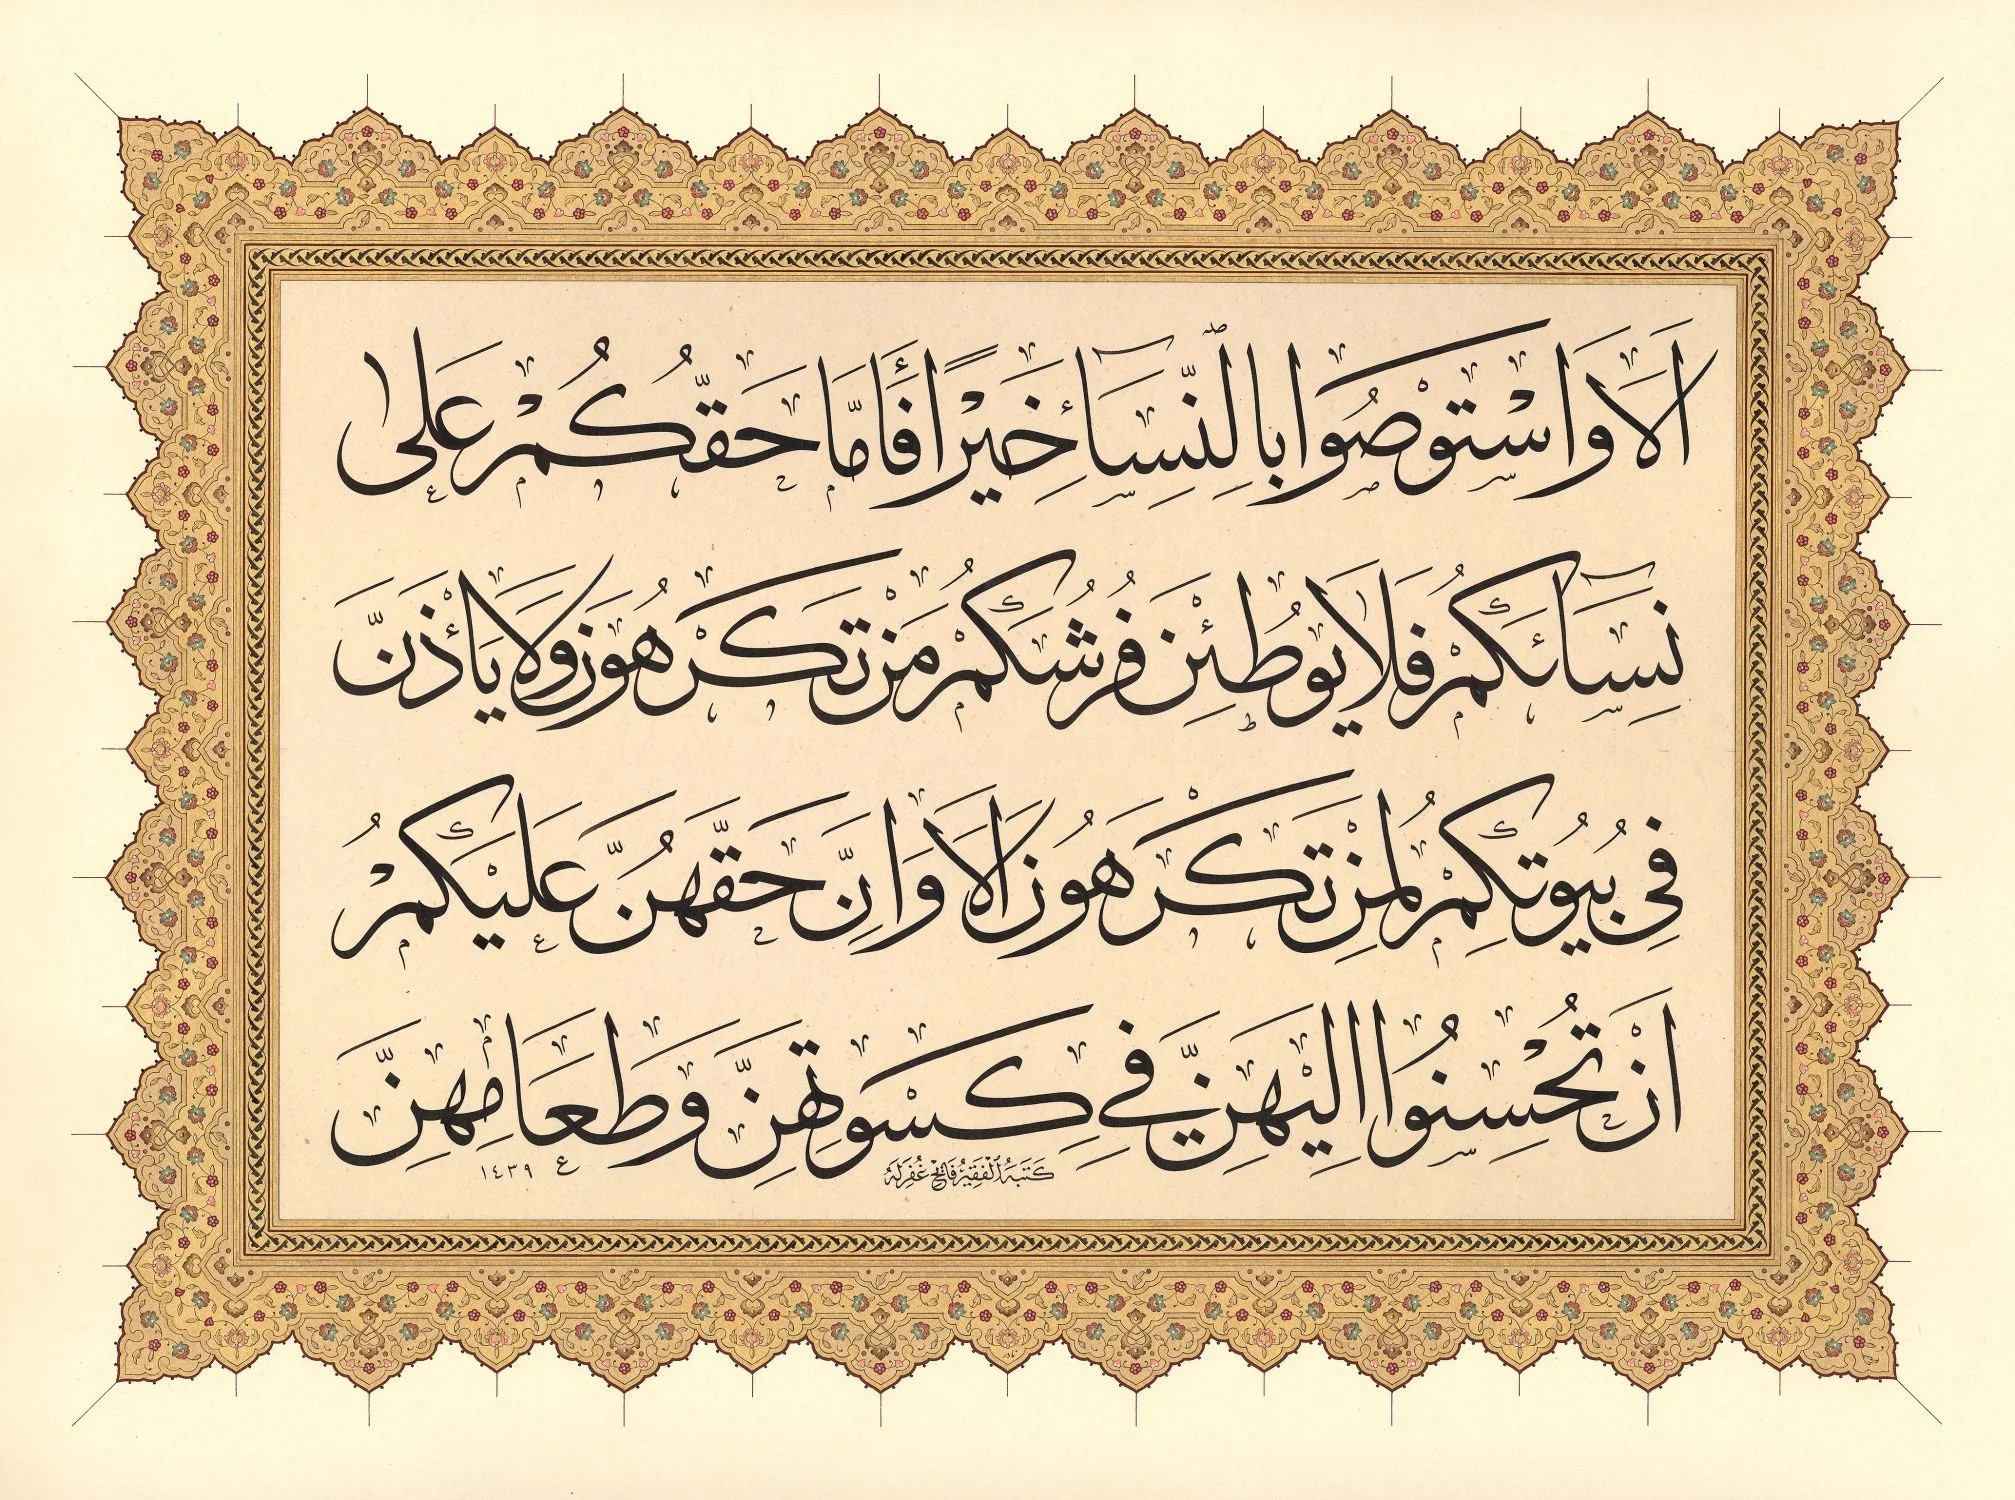 اَلَا وَاسْتَوْصُوا بِالنِّسَٓاءِ خَيْرًا فَأَمَّا حَقُّكُمْ عَلٰى
نِسَٓائِكُمْ فَلَا يُوطِئْنَ فُرُشَكُمْ مَنْ تَكْرَهُونَ وَلَا يَأْذَنَّ
فِي بُيُوتِكُمْ لِمَنْ تَكْرَهُونَ اَلَا وَاِنَّ حَقَّهُنَّ عَلَيْكُمْ
اَنْ تُحْسِنُوا اِلَيْهِنَّ فِي كِسْوَتِهِنَّ وَطَعَامِهِنَّ
كَتَبَهُ الْفَقِيرُ فَاتِحْ غُفِرَ لَهُ ١٤٣٩